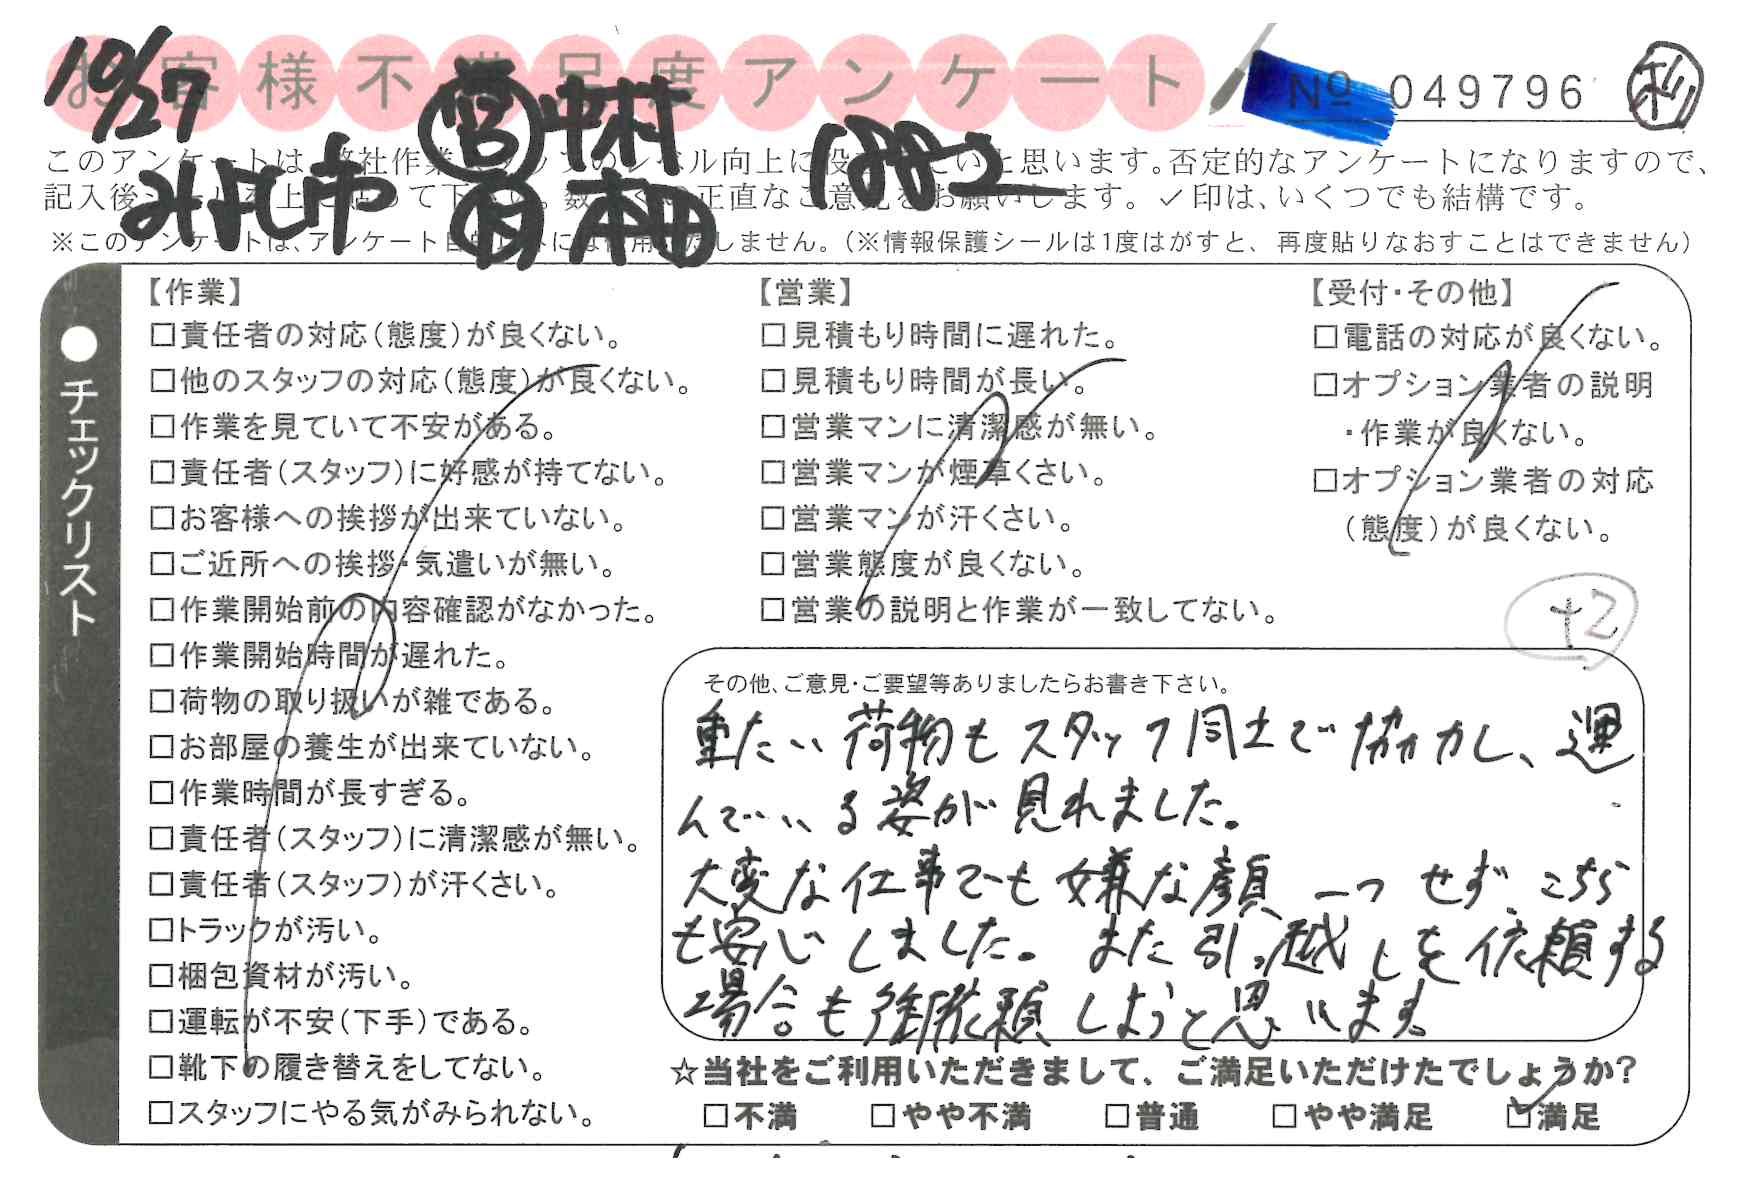 お客様不満足度アンケート
10/27
営 中村
みよし市
本田
1882
No 049796
このアンケートは、弊社作業スタッフのレベル向上に役立てたいと思います。否定的なアンケートになりますので、
記入後シールを上に貼って下さい。数多くの正直なご意見をお願いします。✓印は、いくつでも結構です。
※このアンケートは、アンケート目的以外には使用いたしません。(※情報保護シールは1度はがすと、再度貼りなおすことはできません)
●チェックリスト
【作業】
□責任者の対応(態度)が良くない。
□他のスタッフの対応(態度)が良くない。
□作業を見ていて不安がある。
□責任者(スタッフ)に好感が持てない。
□お客様への挨拶が出来ていない。
□ご近所への挨拶・気遣いが無い。
□作業開始前の内容確認がなかった。
□作業開始時間が遅れた。
□荷物の取り扱いが雑である。
□お部屋の養生が出来ていない。
□作業時間が長すぎる。
□責任者(スタッフ)に清潔感が無い。
□責任者(スタッフ)が汗くさい。
□トラックが汚い。
□梱包資材が汚い。
□運転が不安(下手)である。
□靴下の履き替えをしてない。
□スタッフにやる気がみられない。
【営業】
□見積もり時間に遅れた。
□見積もり時間が長い。
□営業マンに清潔感が無い。
□営業マンが煙草くさい。
□営業マンが汗くさい。
□営業態度が良くない。
□営業の説明と作業が一致してない。
【受付・その他】
□電話の対応が良くない。
□オプション業者の説明
・作業が良くない。
□オプション業者の対応
(態度)が良くない。
+2
その他、ご意見・ご要望等ありましたらお書き下さい。
重たい荷物もスタッフ同士で協力し、運
んでいる姿が見れました。
大変な仕事でも嫌な顔一つせず、こちら
も安心しました。また引っ越しを依頼する
場合も御依頼しようと思います。
☆当社をご利用いただきまして、ご満足いただけたでしょうか?
□不満 □やや不満 □普通 □やや満足 ☑満足